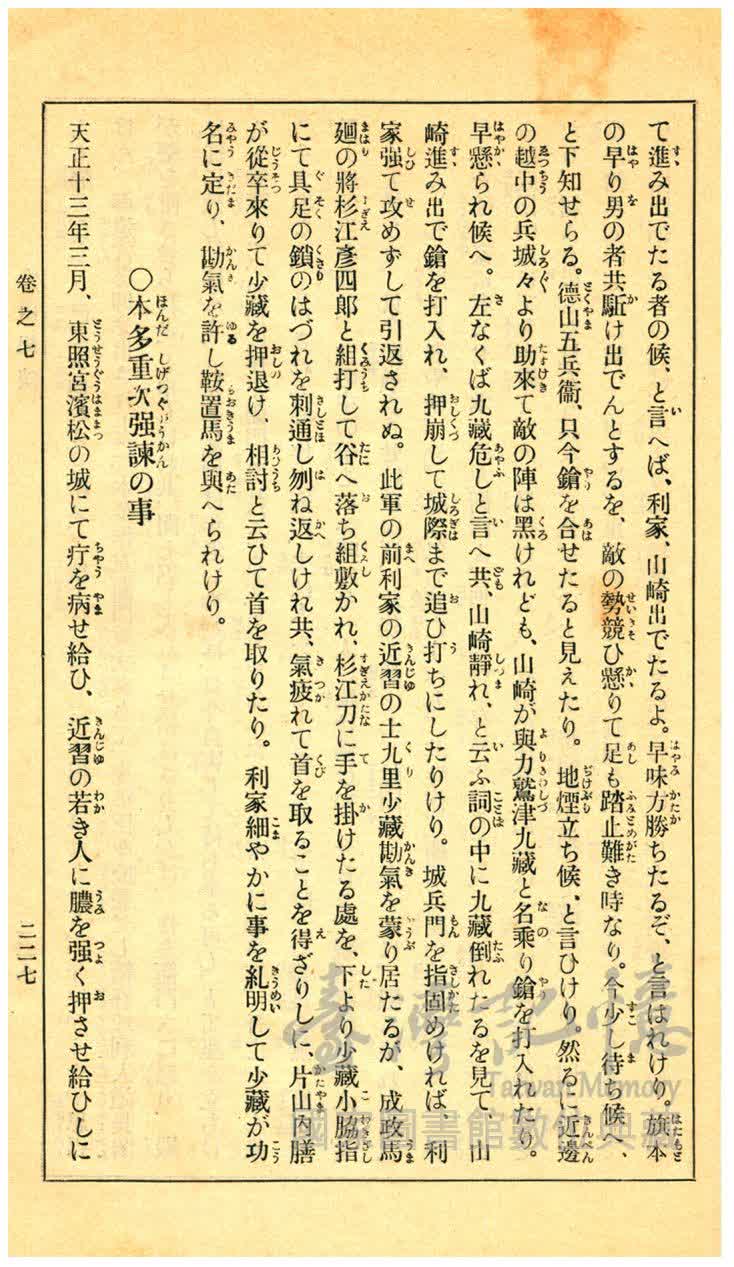 て進み出でたる者の候、と言へば、利家、山崎出でたるよ。早味方勝ちたるぞ、と言はれけり。旗本
の早り男の者共駈け出でんとするを、敵の勢競ひ懸りて足も踏止難き時なり。今少し待ち候へ、
と下知せらる。德山五兵衞、只今鎗を合せたると見えたり。地煙立ち候、と言ひけり。然るに近邊
の越中の兵城々より助來て敵の陣は黑けれども、山崎が與力鷲津九藏と名乘り鎗を打入れたり。
早懸られ候へ。左なくば九藏危しと言へ共、山崎靜れ、と云ふ詞の中に九藏倒れたるを見て、山
崎進み出で鎗を打入れ、押崩して城際まで追ひ打ちにしたりけり。城兵門を指固めければ、利
家强て攻めずして引返されぬ。此軍の前利家の近習の士九里少藏勘氣を蒙り居たるが、成政馬
廻の將杉江彥四郎と組打して谷へ落ち組敷かれ、杉江刀に手を掛けたる處を、下より少藏小脇指
にて具足の鎖のはづれを刺通し刎ね返しけれ共、氣疲れて首を取ることを得ざりしに、片山內膳
が從卒來りて少藏を押退け、相討と云ひて首を取りたり。利家細やかに事を糺明して少藏が功
名に定り、勘氣を許し鞍置馬を與へられけり。
〇本多重次强諫の事
天正十三年三月、東照宮濱松の城にて疔を病せ給ひ、近習の若き人に膿を强く押させ給ひしに
卷之七
二二七
臺灣記憶
Taiwan Memory
國家圖書館數位典藏